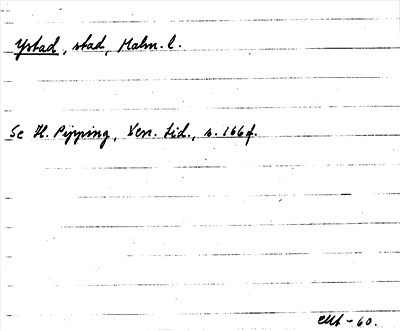 Ystad, stad, Malm. l.
Se H. Pipping, Ven. tid., s. 166f.
-60.